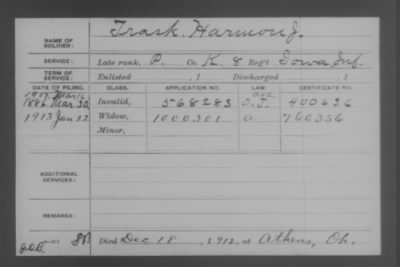 NAME OF SOLDIER: Trask, Harmon J.
SERVICE: Late rank, P. Co. K, 8 Reg't Iowa Inf.
TERM OF SERVICE: Enlisted , 1 Discharged , 1
DATE OF FILING. CLASS. APPLICATION NO. LAW. CERTIFICATE NO.
1907 Mar 16
1886 Mar 30 Invalid, 568283 400636
1913 Jan 22 Widow, 1000301 760356
Minor,
ADDITIONAL SERVICES:
REMARKS:
Died Dec 18, 1912, at Athens, Oh.